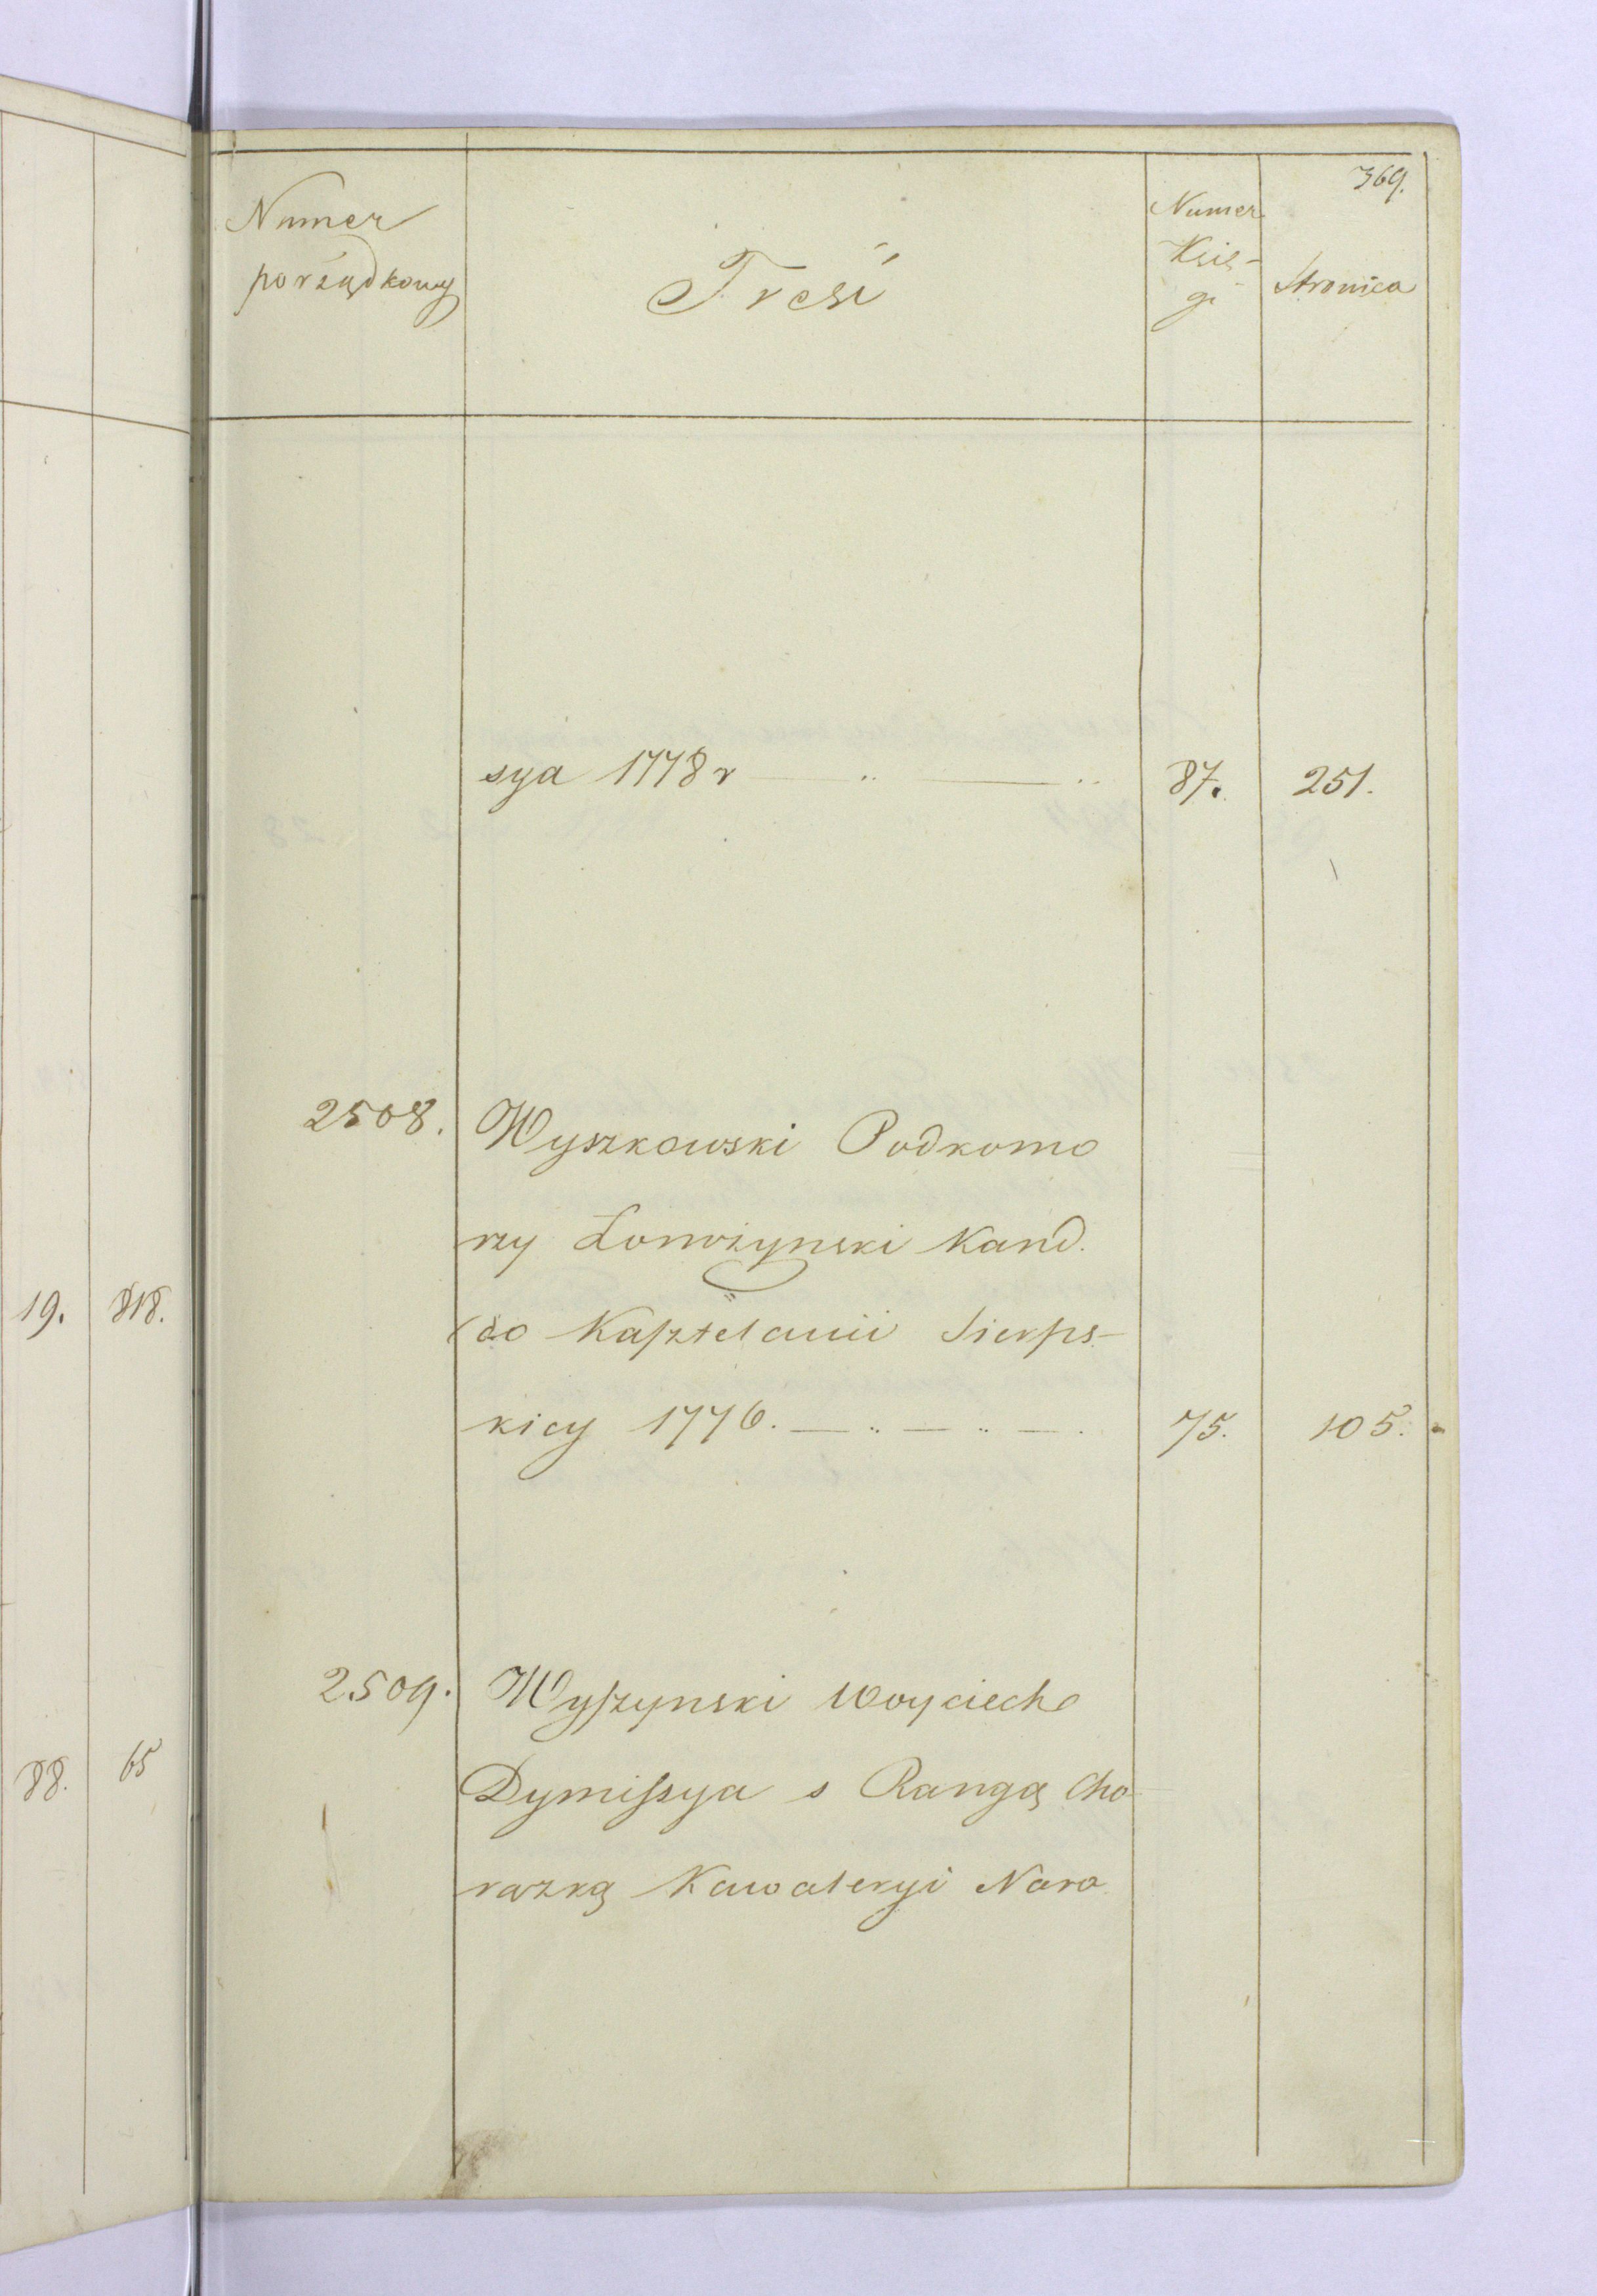 369.
Numer porządkowy
Treść
Numer Księ-gi
Stronica
sya 1778 r 87. 251.
2508. Wyszkowski Podkomo
rzy Łomżynski Kand.
do Kasztelanii Sierps-
kiey 1776. 75. 105.
2509. Wyszynski Woyciech
Dymissya s Rangą Cho-
rążką Kawaleryi Naro
19. 818.
88. 65